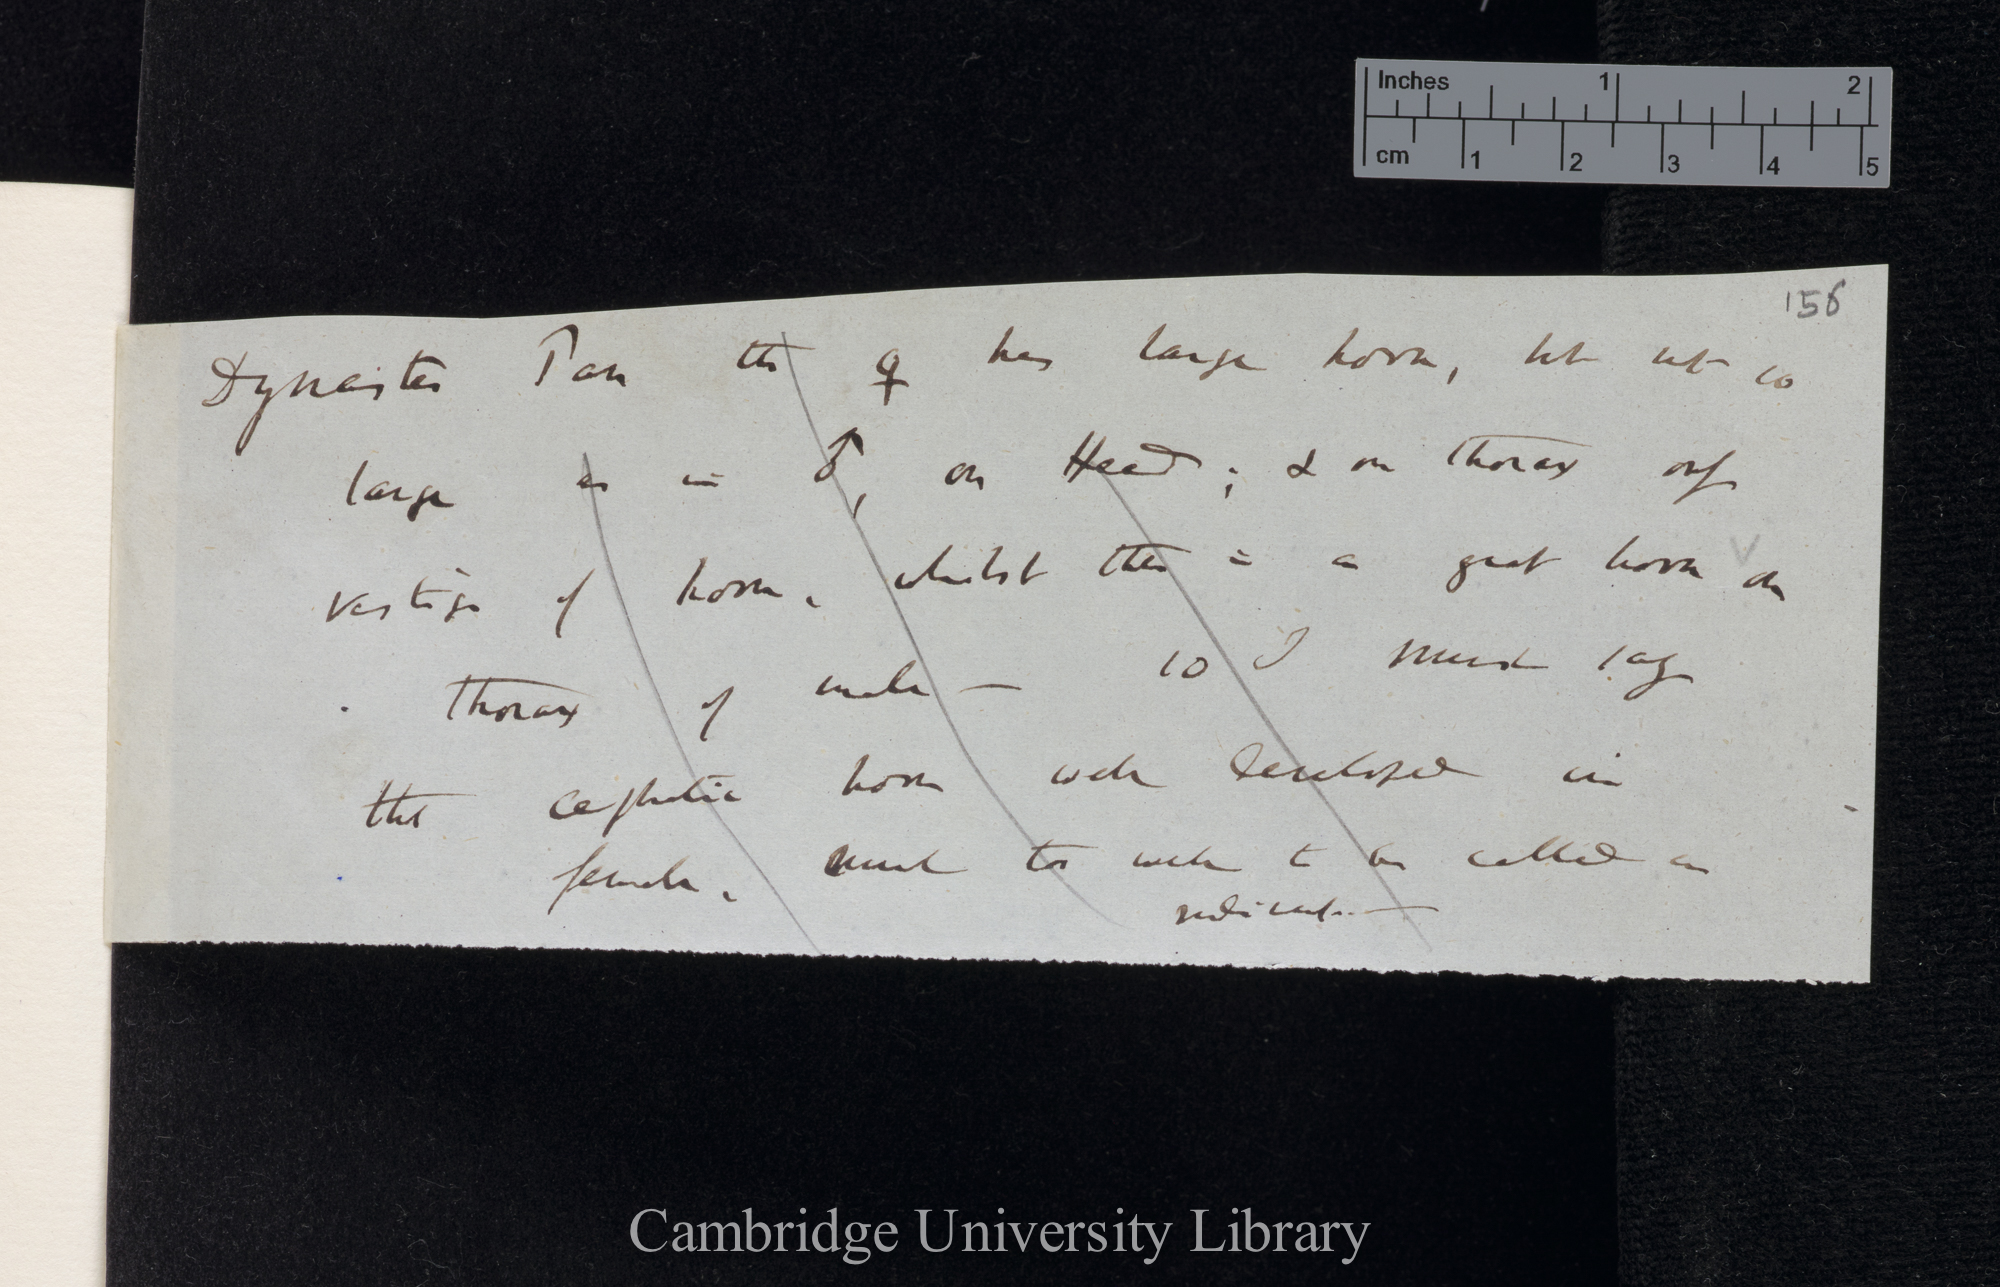 Inches 1 2
cm 1 2 3 4 5
156
Dynastes Pan the ♀ has large horn, but not so
large as in ♂, on Head; & on Thorax only
vestige of horn, whilst there is a great horn on
Thorax of male — so I must say
that cephalic horn well developed in
female, much too well to be called a
rudiment.—
Cambridge University Library